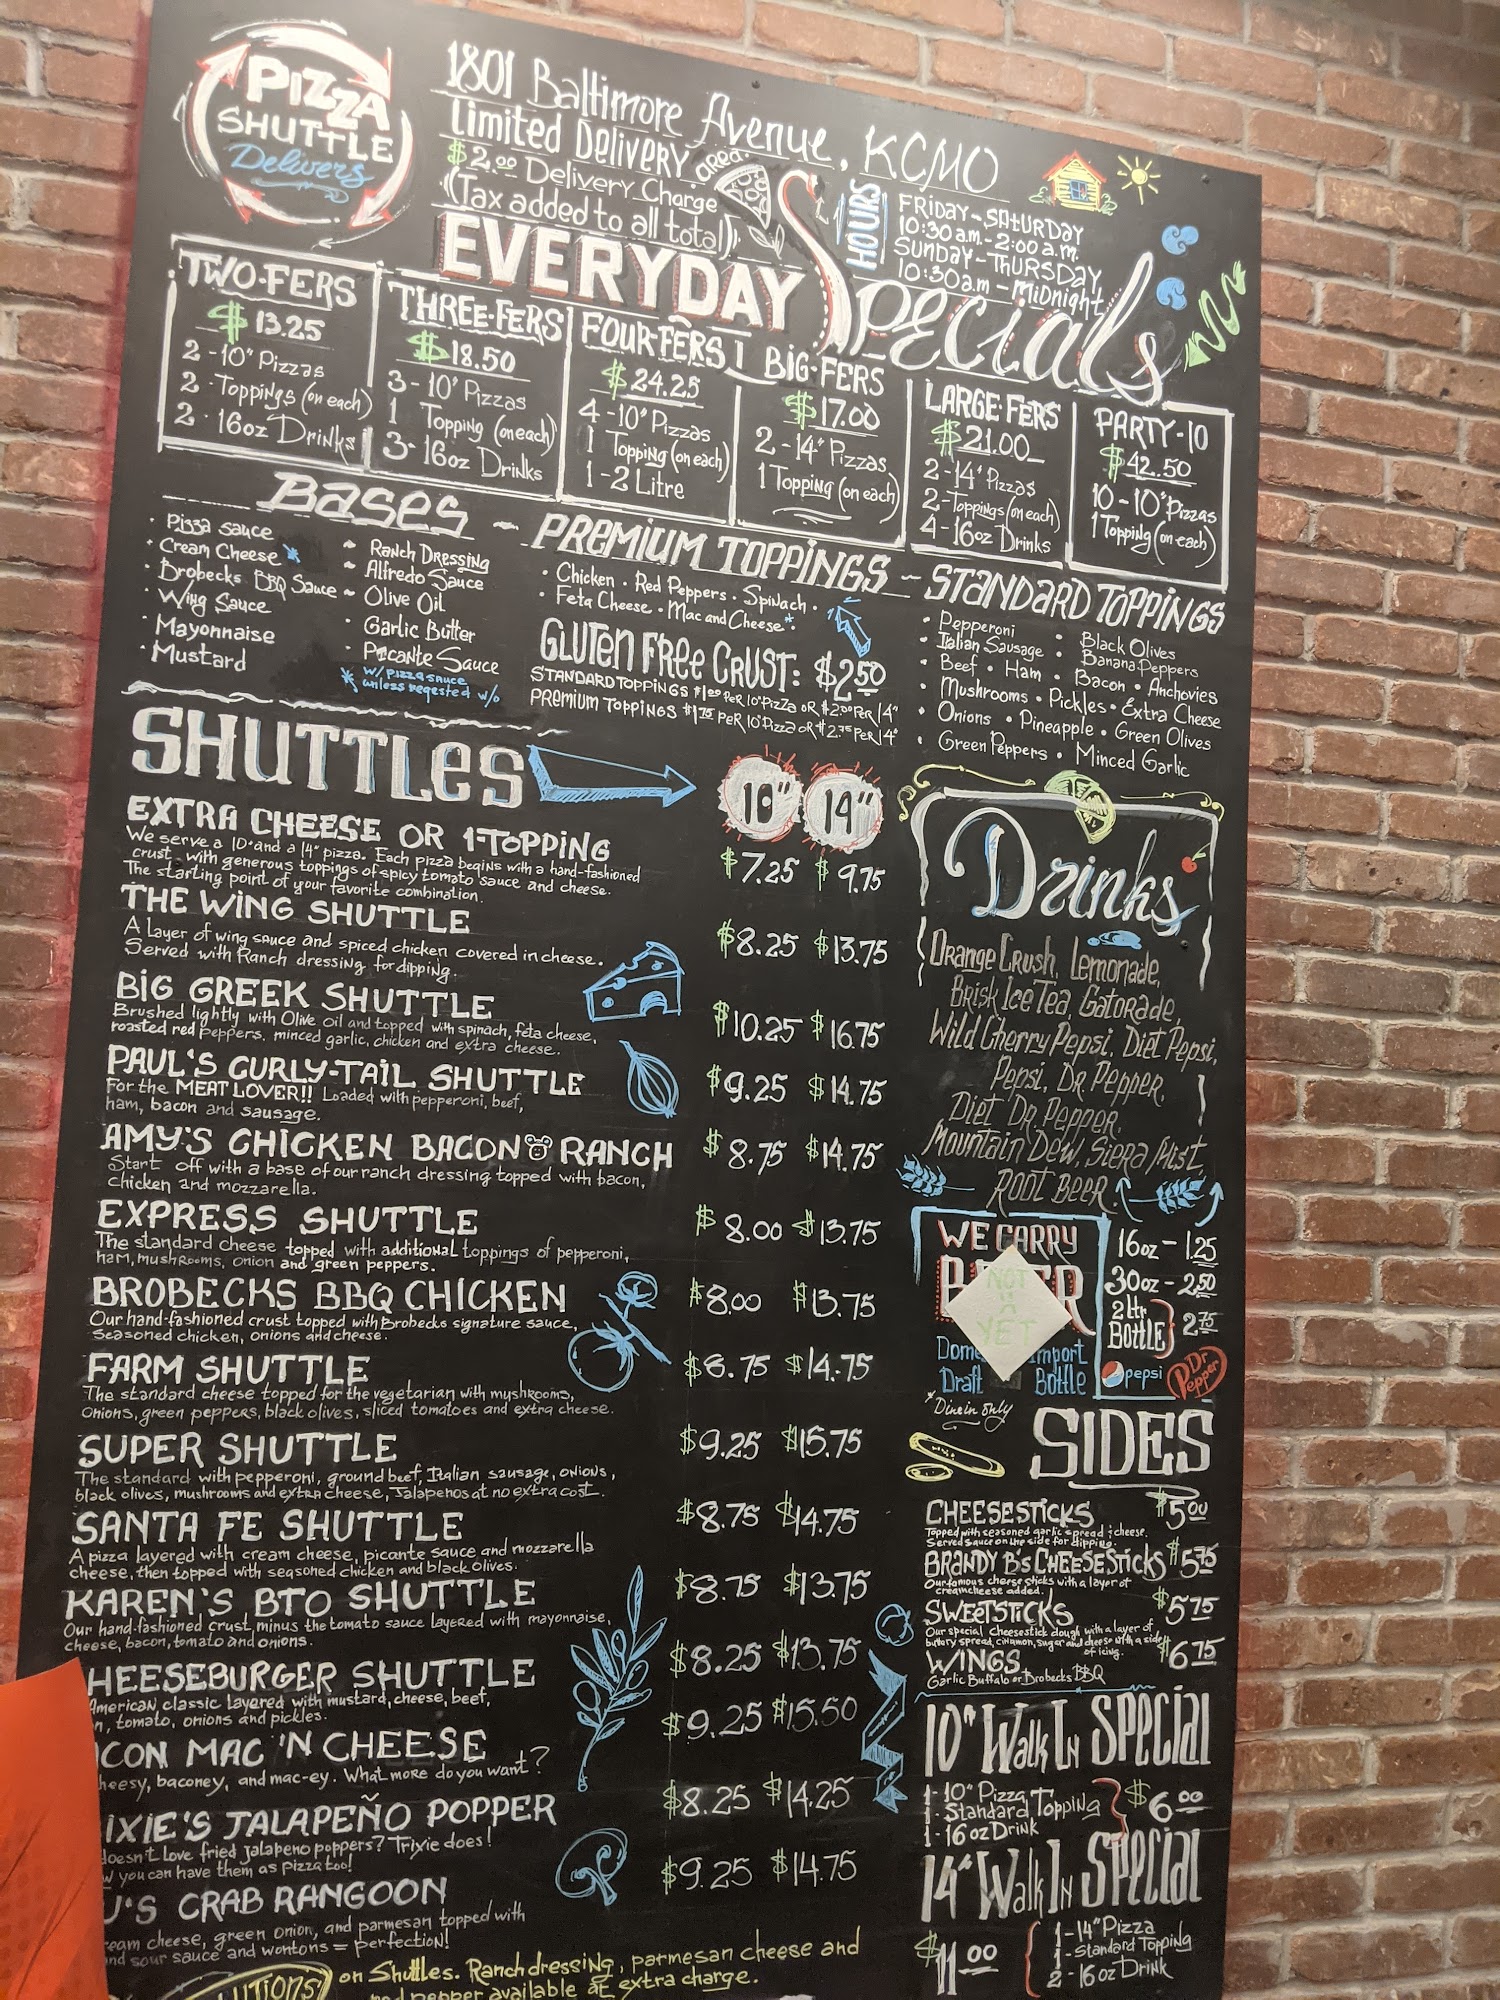 PIZZA
SHUTTLE
Delivers
1801 Baltimore Avenue, KCMO
Limited Delivery area.
$2.00 Delivery Charge
(Tax added to all total)
HOURS
FRIDAY-SATURDAY
10:30 a.m. - 2:00 a.m.
SUNDAY-THURSDAY
10:30 a.m - MIDNIGHT
EVERYDAY Specials
TWO-FERS
$13.25
2 - 10" Pizzas
2 - Toppings (on each)
2 - 16oz Drinks
THREE-FERS
$18.50
3 - 10" Pizzas
1 Topping (on each)
3 - 16oz Drinks
FOUR-FERS
$24.25
4 - 10" Pizzas
1 Topping (on each)
1 - 2 Litre
BIG-FERS
$17.00
2 - 14" Pizzas
1 Topping (on each)
LARGE-FERS
$21.00
2 - 14" Pizzas
2 - Toppings (on each)
4 - 16oz Drinks
PARTY-10
$42.50
10 - 10" Pizzas
1 Topping (on each)
Bases
· Pizza sauce
· Cream Cheese *
· Brobecks BBQ Sauce
· Wing Sauce
· Mayonnaise
· Mustard
~ Ranch DRESSING
~ Alfredo Sauce
~ Olive Oil
· Garlic Butter
· Picante Sauce
* w/ pizza sauce
unless reqested w/o
PREMIUM TOPPINGS
· Chicken · Red Peppers · Spinach ·
· Feta Cheese · Mac and Cheese*·
GLUTEN FREE CRUST: $2.50
STANDARD TOPPINGS $1.00 PER 10" PIZZA OR $2.00 PER 14"
PREMIUM TOPPINGS $1.75 PER 10" PIZZA OR $2.75 PER 14"
STANDARD TOPPINGS
· Pepperoni · Black Olives
· Italian Sausage · Banana Peppers
· Beef · Ham · Bacon · Anchovies
· Mushrooms · Pickles · Extra Cheese
· Onions · Pineapple · Green Olives
· Green Peppers · Minced Garlic
SHUTTLES
10" 14"
EXTRA CHEESE OR 1-TOPPING $7.25 $9.75
We serve a 10" and a 14" pizza. Each pizza begins with a hand-fashioned
crust, with generous toppings of spicy tomato sauce and cheese.
The starting point of your favorite combination.
THE WING SHUTTLE $8.25 $13.75
A Layer of wing sauce and spiced chicken covered in cheese.
Served with Ranch dressing for dipping.
BIG GREEK SHUTTLE $10.25 $16.75
Brushed lightly with Olive Oil and topped with spinach, feta cheese,
roasted red peppers, minced garlic, chicken and extra cheese.
PAUL'S CURLY-TAIL SHUTTLE $9.25 $14.75
For the MEAT LOVER!! Loaded with pepperoni, beef,
ham, bacon and sausage.
AMY'S CHICKEN BACON RANCH $8.75 $14.75
Start off with a base of our ranch dressing topped with bacon,
chicken and mozzarella.
EXPRESS SHUTTLE $8.00 $13.75
The standard cheese topped with additional toppings of pepperoni,
ham, mushrooms, onion and green peppers.
BROBECKS BBQ CHICKEN $8.00 $13.75
Our hand-fashioned crust topped with Brobecks signature sauce,
seasoned chicken, onions and cheese.
FARM SHUTTLE $8.75 $14.75
The standard cheese topped for the vegetarian with mushrooms,
onions, green peppers, black olives, sliced tomatoes and extra cheese.
SUPER SHUTTLE $9.25 $15.75
The standard with pepperoni, ground beef, Italian sausage, onions,
black olives, mushrooms and extra cheese, Jalapenos at no extra cost.
SANTA FE SHUTTLE $8.75 $14.75
A pizza layered with cream cheese, picante sauce and mozzarella
cheese, then topped with seasoned chicken and black olives.
KAREN'S BTO SHUTTLE $8.75 $13.75
Our hand-fashioned crust minus the tomato sauce layered with mayonnaise,
cheese, bacon, tomato and onions.
HEESEBURGER SHUTTLE $8.25 $13.75
American classic layered with mustard, cheese, beef,
n, tomato, onions and pickles.
CON MAC 'N CHEESE $9.25 $15.50
heesy, baconey, and mac-ey. What more do you want?
IXIE'S JALAPEÑO POPPER $8.25 $14.25
doesn't love fried jalapeno poppers? Trixie does!
w you can have them as pizza too!
J'S CRAB RANGOON $9.25 $14.75
ream cheese, green onion, and parmesan topped with
nd sour sauce and wontons = perfection!
UTIONS! on Shuttles. Ranch dressing, parmesan cheese and
ed pepper available at extra charge.
Drinks
Orange Crush, Lemonade,
Brisk Ice Tea, Gatorade,
Wild Cherry Pepsi, Diet Pepsi,
Pepsi, Dr Pepper,
Diet Dr. Pepper,
Mountain Dew, Siera Mist,
ROOT BEER
WE CARRY
NOT
YET
Draft
Import
Bottle
*Dine in only
16oz - 1.25
30oz - 2.50
2 ltr
BOTTLE } 2.75
pepsi
Dr Pepper
SIDES
CHEESESTICKS $5.00
Topped with seasoned garlic spread & cheese.
Served sauce on the side for dipping.
BRANDY B'S CHEESESTICKS $5.75
Our famous cheese sticks with a layer of
creamcheese added.
SWEETSTICKS $5.75
Our special Cheesestick dough with a layer of
buttery spread, cinnamon, sugar and cheese with a side
of icing.
WINGS $6.75
Garlic Buffalo or Brobecks BBQ
10" Walk In Special
1 - 10" Pizza
1 - Standard Topping
1 - 16oz Drink
$6.00
14" Walk In Special
$11.00
1 - 14" Pizza
1 - Standard Topping
2 - 16oz Drink